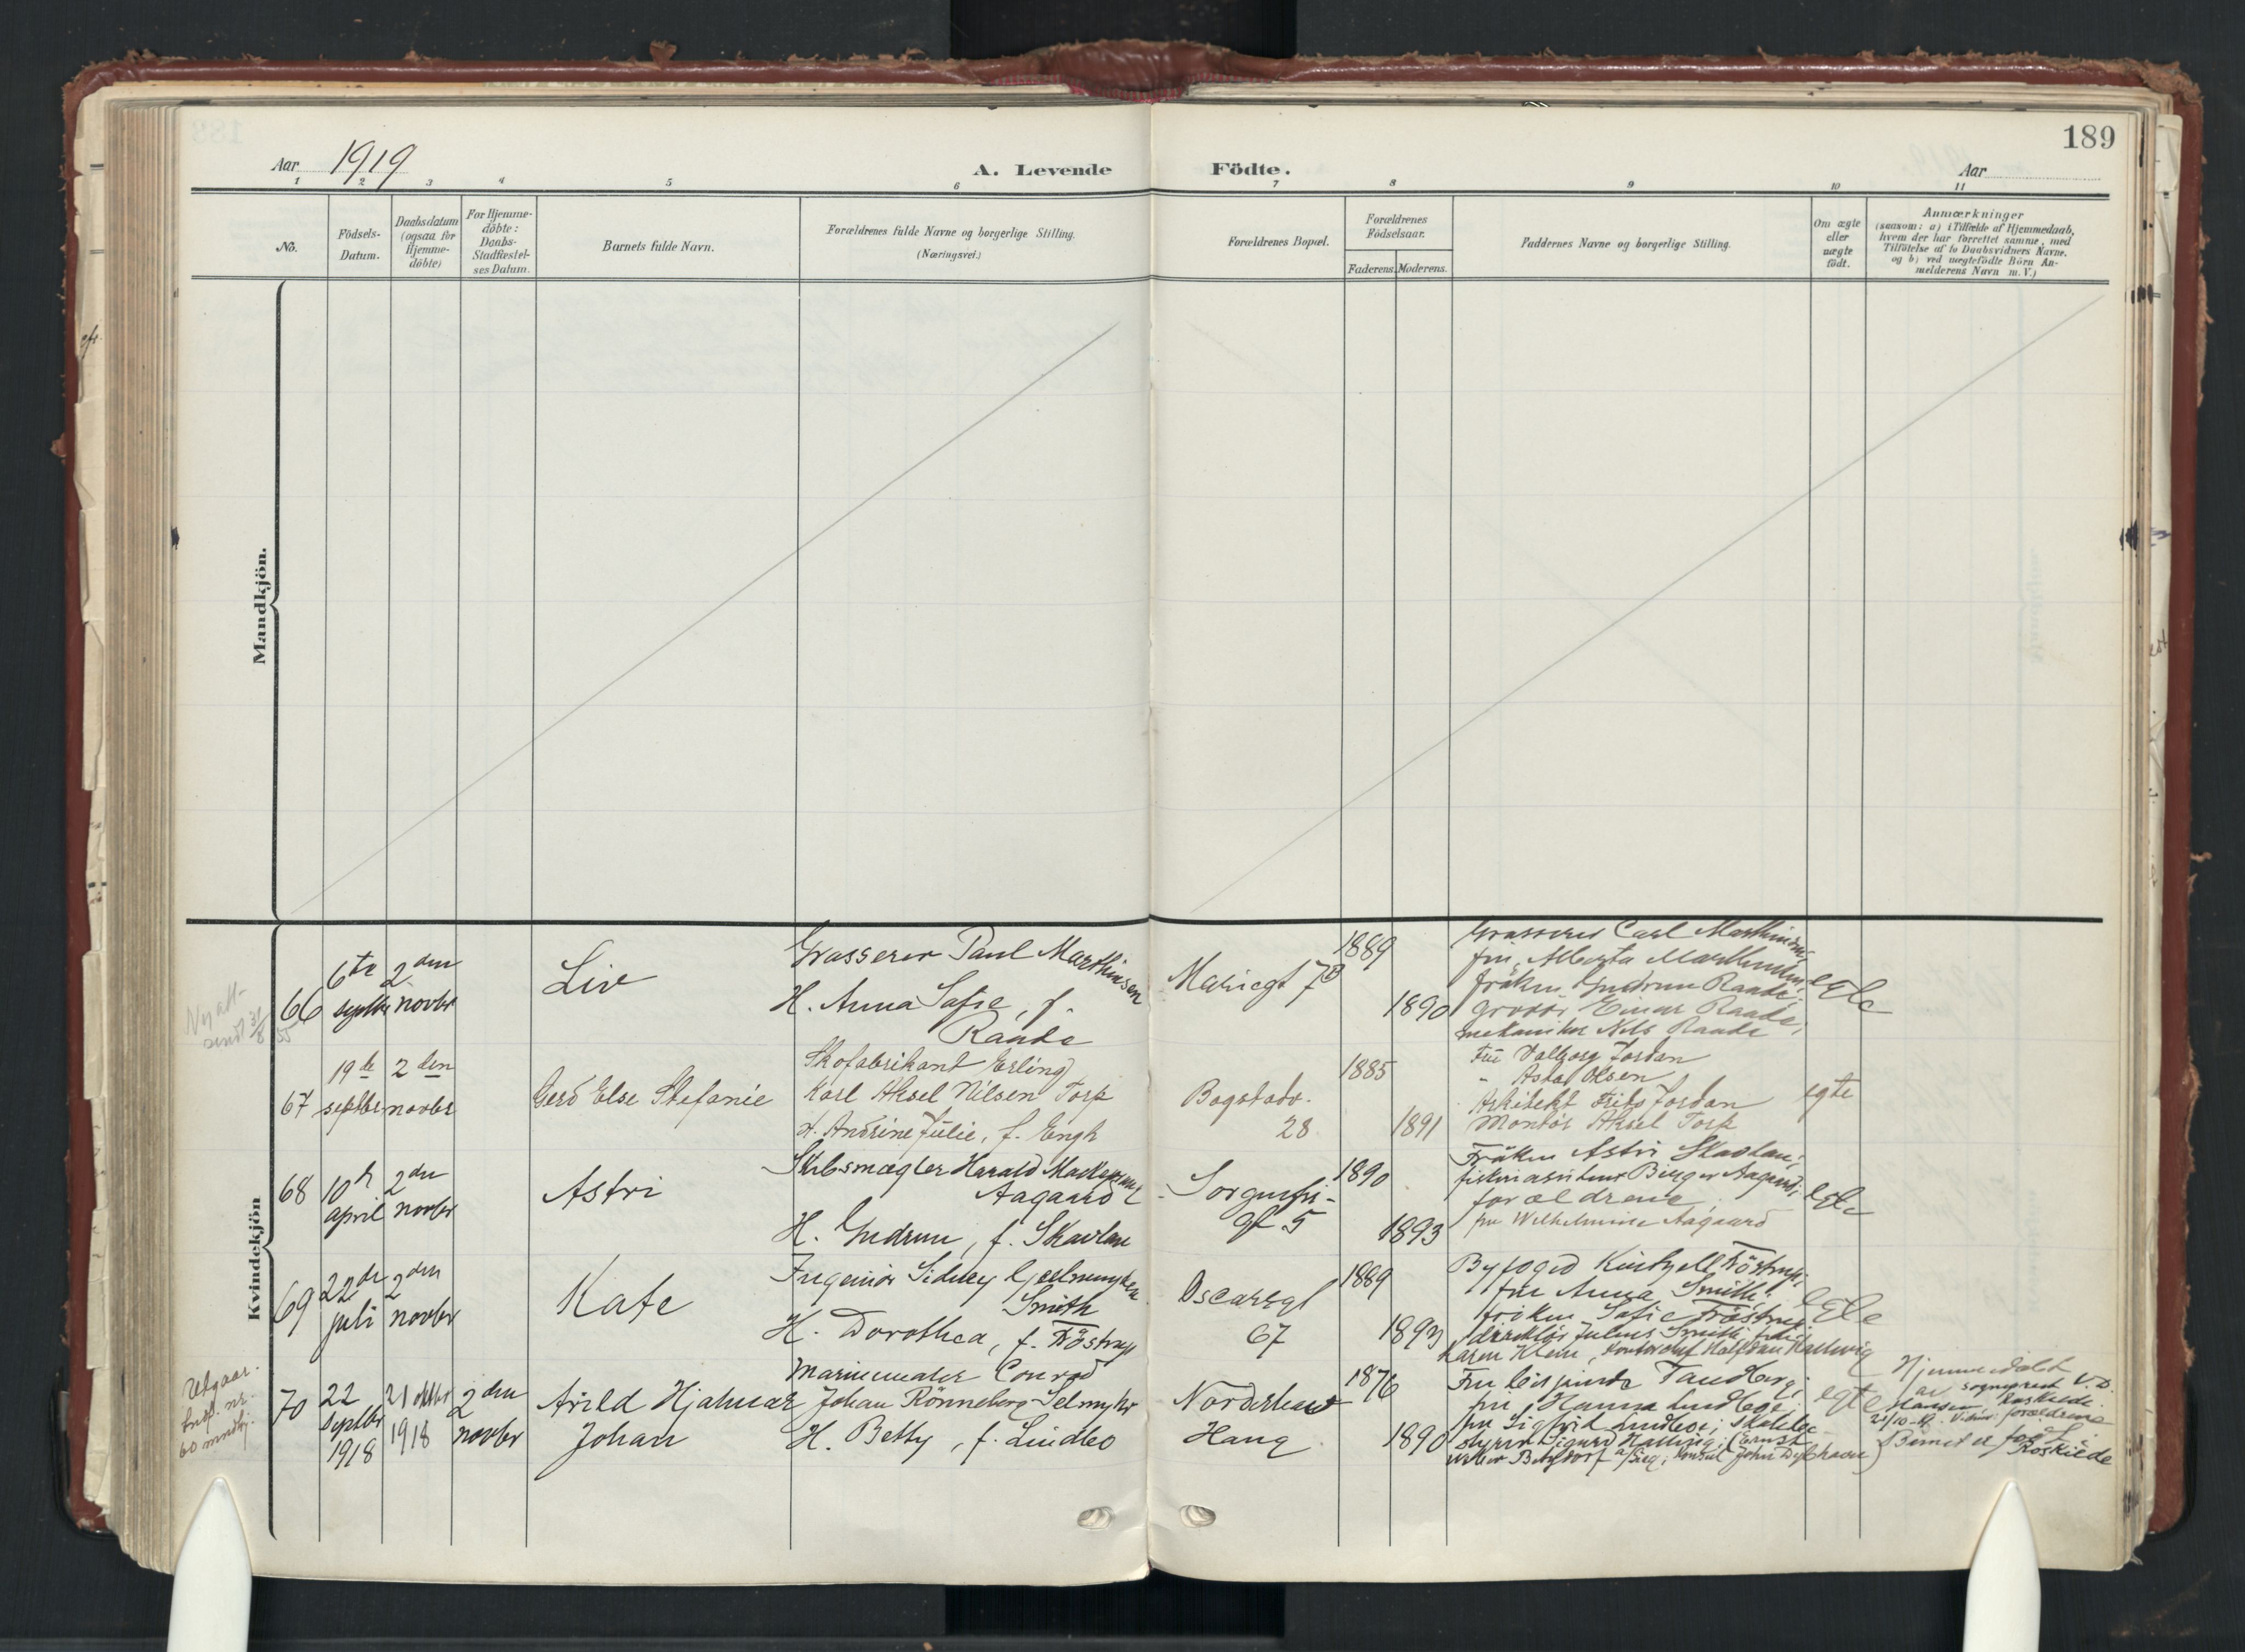 189
Aar 1919
A. Levende Födte.
Aar
1 2 3 4 5 6 7 8 9 10 11
No.
Födsels-
Datum.
Daabsdatum
(ogsaa for
Hjemme-
döbte)
For Hjemme-
döbte:
Daabs-
Stadfæstel-
ses Datum.
Barnets fulde Navn.
Forældrenes fulde Navne og borgerlige Stilling.
(Næringsvei.)
Forældrenes Bopæl.
Forældrenes
Födselsaar.
Faderens.
Moderens.
Faddernes Navne og borgerlige Stilling.
Om ægte
eller
uægte
födt.
Anmærkninger
(saasom: a) i Tilfælde af Hjemmedaab,
hvem der har forrettet samme, med
Tilföielse af to Daabsvidners Navne,
og b) ved uægtefödte Börn An-
melderens Navn m. V.)
Mandkjön.
Kvindekjön
66
6te
septbr
2den
novbr
Liv
Grosserer Paul Marthinsen
H. Anna Sofie, f.
Raade
Mariegt 7B
1889
1890
Grosserer Carl Marthinsen;
fru Alberta Marthinsen;
fröken Gudrun Raade;
gross. Einar Raade;
mekaniker Nils Raade
egte
67
19de
septbr
2den
novbr
Gerd Else Stefanie
Skofabrikant Erling
Karl Aksel Nilsen Torp
H. Andrine Julie, f. Engh
Bogstadv.
28
1885
1891
Fru Valborg Jordan
" Asta Olsen
Arkitekt Frits Jordan
Montör Aksel Torp
egte
68
10de
april
2den
novbr
Astri
Skibsmægler Harald
Aagaard
H. Gudrun, f. Skavlan
Sorgenfri-
gt 5
1890
1893
Fröken Astri Skavlan;
Birger Aagaard;
forældrene
fru Wilhelmine Aagaard
egte
69
22de
juli
2den
novbr
Kate
Ingeniör Sidney Gjelmuyden
Smith
H. Dorothea, f. Tröstrup
Oscarsgt
67
1889
1893
Byfoged Tröstrup;
fru Anna Smith;
fröken Sofie Tröstrup
direktör Julius Smith;
Karen Klem, Halfdan Hallwig
egte
Utgaar.
Indf. nr.
60 mndkj.
70
22
septbr
1918
21 oktbr
1918
2den
novbr
Arild Hjalmar
Johan
Marinemaler Conrad
Johan Rönneberg Selmyhr
H. Betty, f. Lindboe
Norderhaus
Haug
1876
1890
Fru Tandberg;
fru Hanna Lindboe;
fru Sigfrid Lindboe;
Sigurd Hallwig; (Ernst
konsul John Dybhavn)
egte
Hjemmedöbt
av sogneprest V. D.
Hansen, Roskilde
21/10-18. Vidner: forældrene
Barnet er föd i
Roskilde